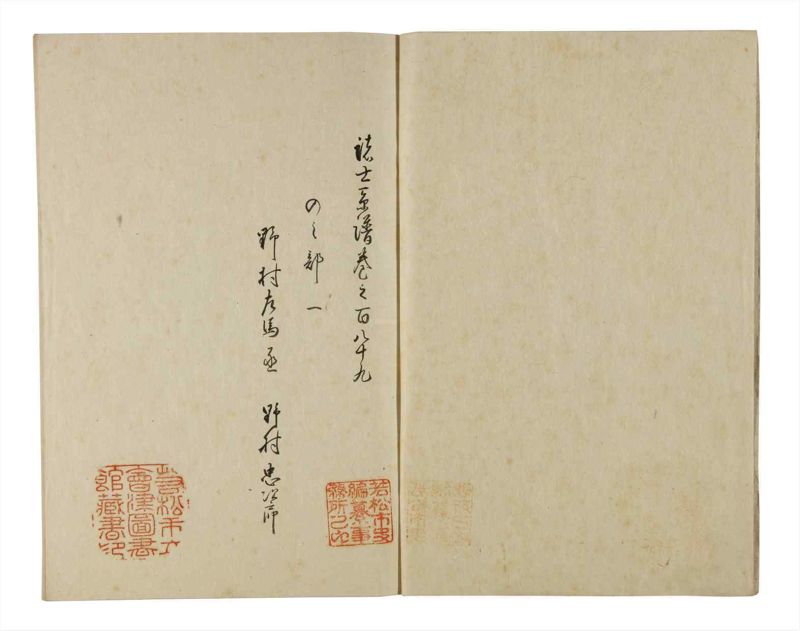 諸士系譜巻之百八十九
のゝ部 一
野村左馬丞 野村忠次郎
若松市史
編纂事
務所之印
若松市立
會津圖書
館藏書印